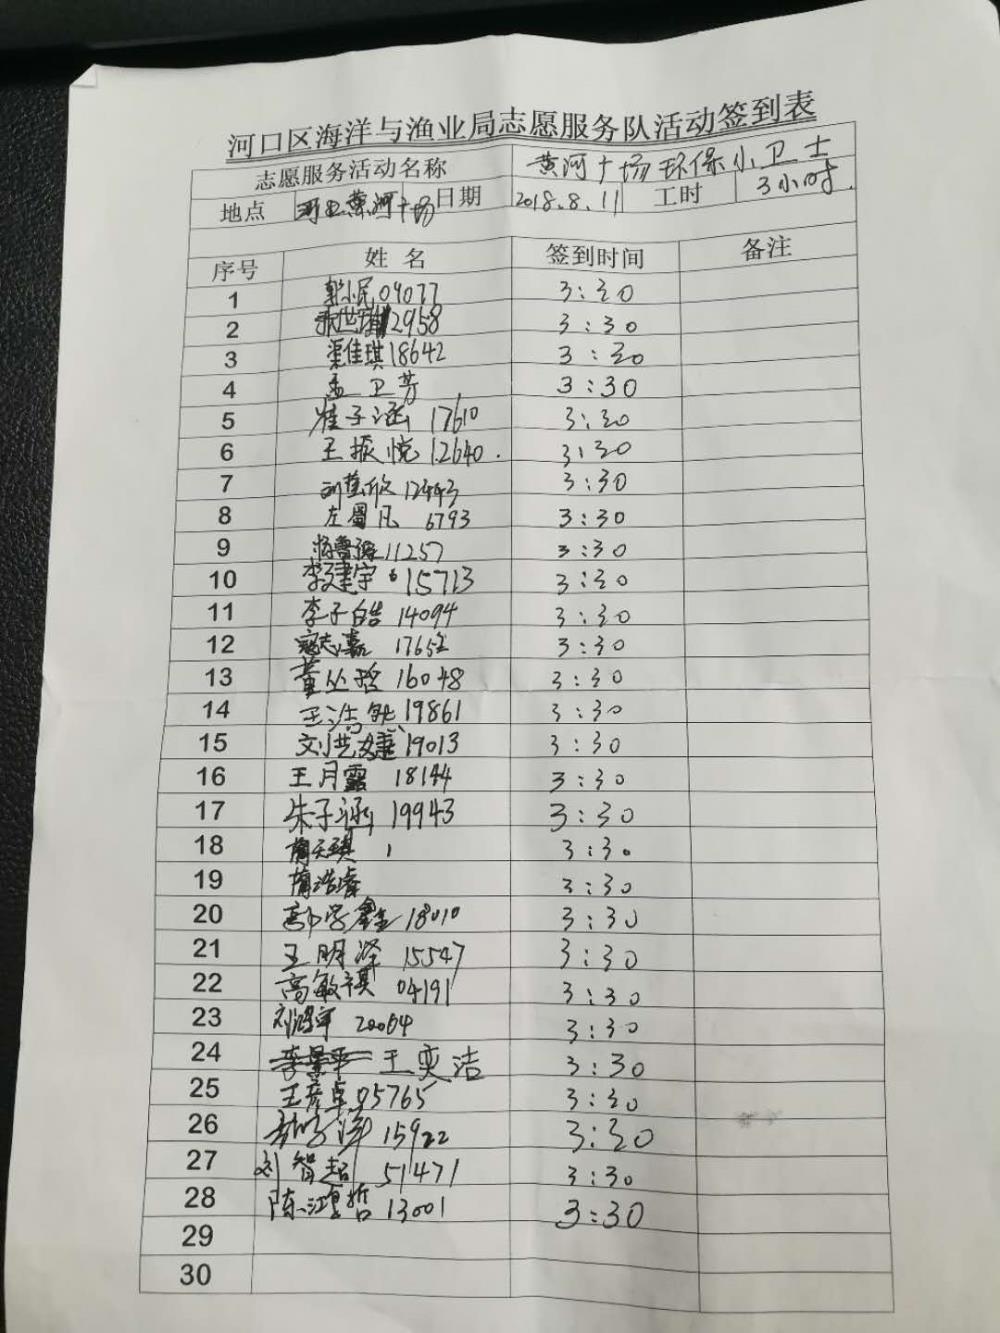 河口区海洋与渔业局志愿服务队活动签到表
志愿服务活动名称 黄河广场环保小卫士
地点 河口黄河广场 日期 2018.8.11 工时 3小时.
序号 姓名 签到时间 备注
1 郭小民 09077 3:30
2 2958 3:30
3 佳琪 18642 3:30
4 孟卫芳 3:30
5 崔子涵 17610 3:30
6 王振悦 12640. 3:30
7 刘 欣 12443 3:30
8 左 凡 6793 3:30
9 11257 3:30
10 李建宇 15713 3:30
11 李子皓 14094 3:30
12 寇志嘉 3:30
13 董丛哲 16048 3:30
14 王浩 19861 3:30
15 刘洪婕 19013 3:30
16 王月露 18144 3:30
17 朱子涵 19943 3:30
18 蔺天琪 3:30
19 蔺浩睿 3:30
20 学鑫 18010 3:30
21 王明泽 15547 3:30
22 高敏祺 04191 3:30
23 刘鸿宇 20064 3:30
24 李景平 王奕洁 3:30
25 王彦卓 95765 3:30
26 洋 15922 3:30
27 刘智超 51471 3:30
28 陈鸿哲 13001 3:30
29
30